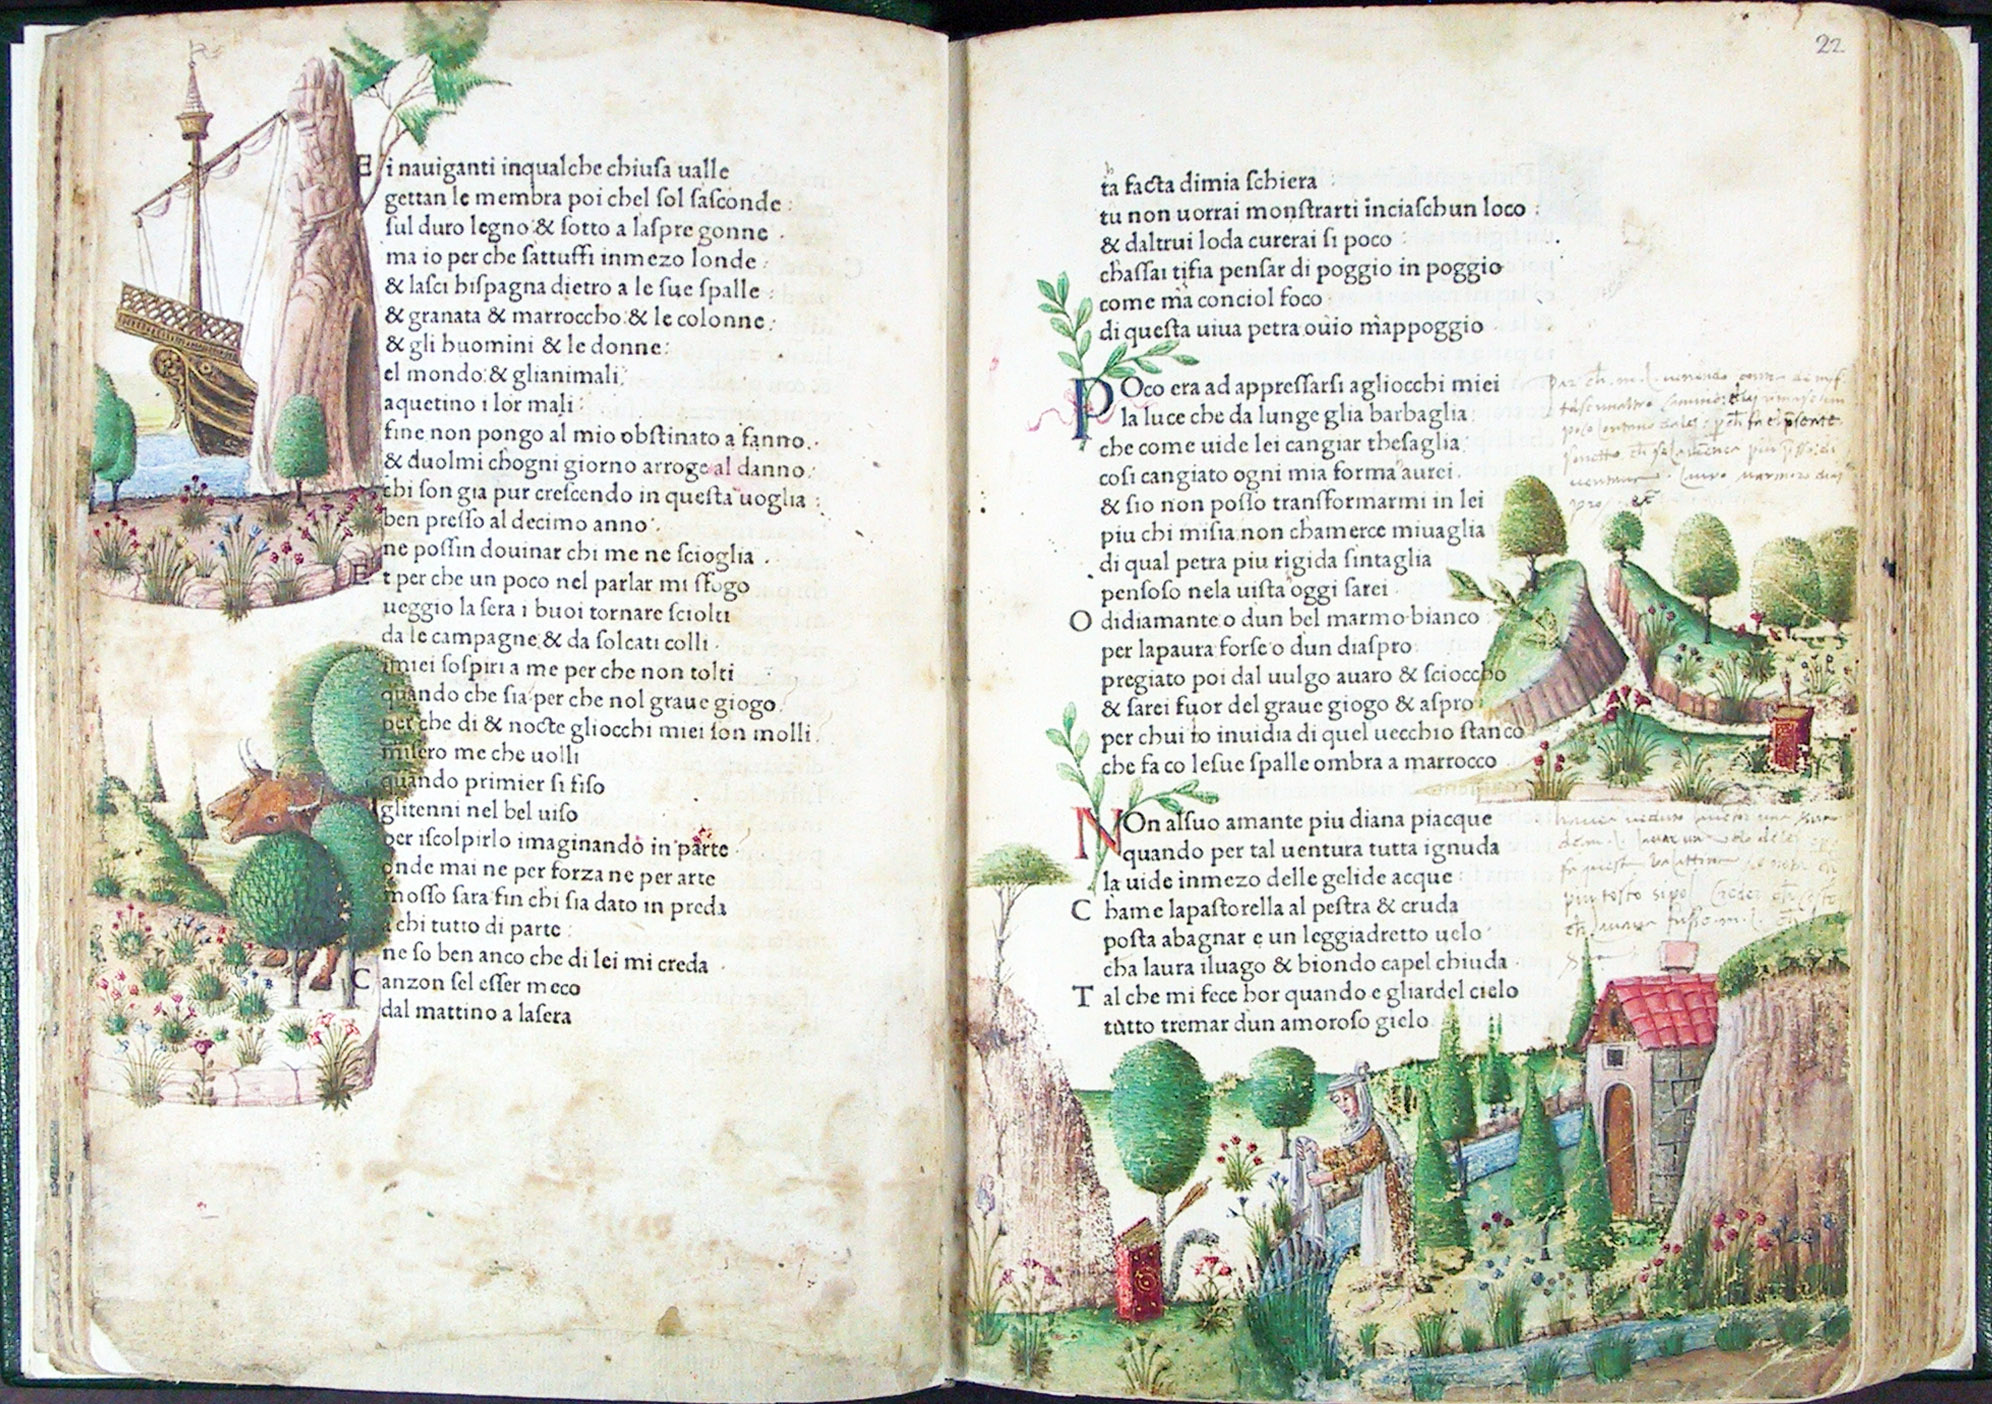 Ei nauiganti inqualche chiusa ualle
gettan le membra poi chel sol sasconde:
sul duro legno & sotto a laspre gonne.
ma io per che sattuffi inmezo londe:
& lasci hispagna dietro a le sue spalle:
& granata & marroccho: & le colonne:
& gli huomini & le donne:
el mondo: & glianimali:
aquetino i lor mali:
fine non pongo al mio obstinato a fanno.
& duolmi chogni giorno arroge al danno:
chi son gia pur crescendo in questa uoglia:
ben presso al decimo anno:
ne possin douinar chi me ne scioglia.
Et per che un poco nel parlar mi sfogo
ueggio la sera i buoi tornare sciolti
da le campagne & da solcati colli.
imiei sospiri a me per che non tolti
quando che sia per che nol graue giogo.
per che di & nocte gliocchi miei son molli.
misero me che uolli
quando primier si fiso
glitenni nel bel uiso
per iscolpirlo imaginando in parte.
onde mai ne per forza ne per arte
mosso sara fin chi sia dato in preda
a chi tutto di parte:
ne so ben anco che di lei mi creda.
Canzon sel esser meco
dal mattino a lasera
22
ta facta dimia schiera
tu non uorrai monstrarti inciaschun loco:
& daltrui loda curerai si poco
chassai tifia pensar di poggio in poggio
come ma conciol foco
di questa uiua petra ouio mappoggio
POco era ad appressarsi agliocchi miei
la luce che da lunge glia barbaglia
che come uide lei cangiar thesaglia
cosi cangiato ogni mia forma aurei.
& sio non posso transformarmi in lei
piu chi misia non chamerce miuaglia
di qual petra piu rigida sintaglia
pensoso nela uista oggi sarei.
O didiamante o dun bel marmo bianco
per lapaura forse o dun diaspro
pregiato poi dal uulgo auaro & scioccho
& sarei fuor del graue giogo & aspro
per chui io inuidia di quel uecchio stanco
che fa co lesue spalle ombra a marrocco
NOn alsuo amante piu diana piacque
quando per tal uentura tutta ignuda
la uide inmezo delle gelide acque
Chame lapastorella al pestra & cruda
posta abagnar e un leggiadretto uelo
cha laura iluago & biondo capel chiuda
Tal che mi fece hor quando e gliardel cielo
tutto tremar dun amoroso gielo